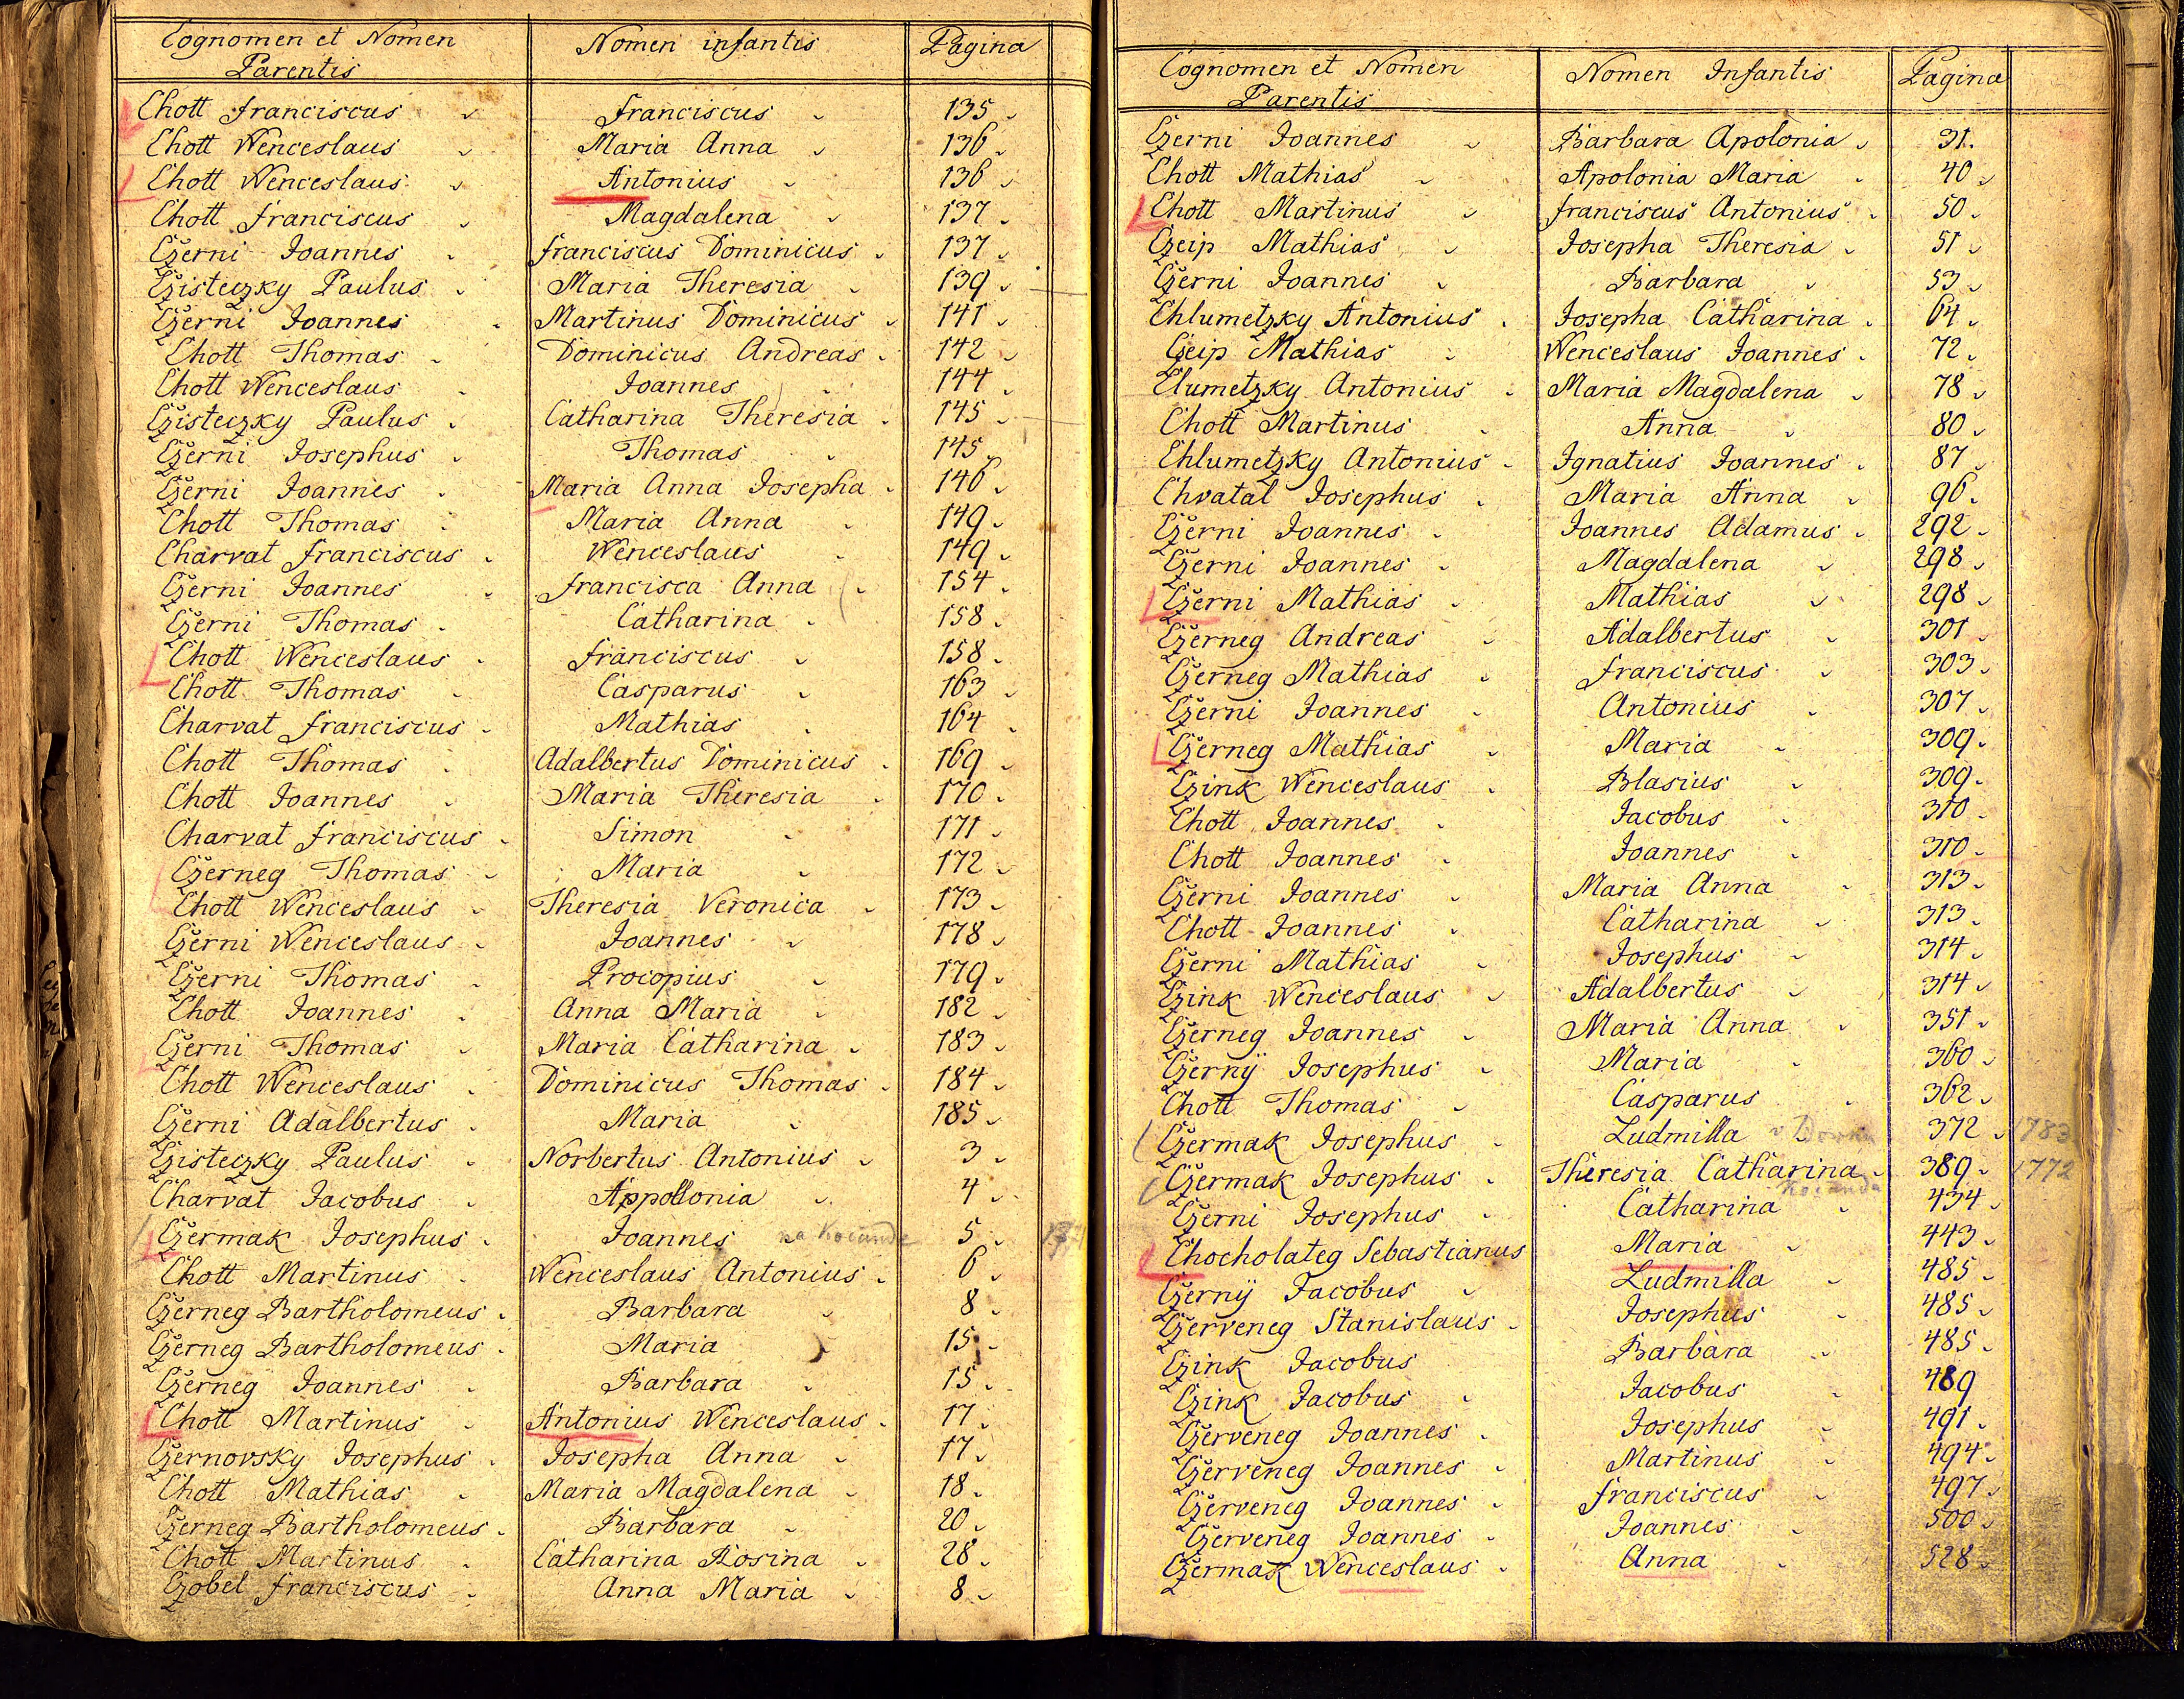 Cognomen et Nomen Parentis Nomen infantis Pagina
Chott Franciscus Franciscus 135
Chott Wenceslaus Maria Anna 136
Chott Wenceslaus Antonius 136
Chott Franciscus Magdalena 137
Czerni Joannes Franciscus Dominicus 137
Czisteczky Paulus Maria Theresia 139
Czerni Joannes Martinus Dominicus 141
Chott Thomas Dominicus Andreas 142
Chott Wenceslaus Joannes 144
Czisteczky Paulus Catharina Theresia 145
Czerni Josephus Thomas 145
Czerni Joannes Maria Anna Josepha 146
Chott Thomas Maria Anna 149
Charvat Franciscus Wenceslaus 149
Czerni Joannes Francisca Anna 154
Czerni Thomas Catharina 158
Chott Wenceslaus Franciscus 158
Chott Thomas Casparus 163
Charvat Franciscus Mathias 164
Chott Thomas Adalbertus Dominicus 169
Chott Joannes Maria Theresia 170
Charvat Franciscus Simon 171
Czerneg Thomas Maria 172
Chott Wenceslaus Theresia Veronica 173
Czerni Wenceslaus Joannes 178
Czerni Thomas Procopius 179
Chott Joannes Anna Maria 182
Czerni Thomas Maria Catharina 183
Chott Wenceslaus Dominicus Thomas 184
Czerni Adalbertus Maria 185
Czisteczky Paulus Norbertus Antonius 3
Charvat Jacobus Appollonia 4
Czermak Josephus Joannes na Kocandě 5
Chott Martinus Wenceslaus Antonius 6
Czerneg Bartholomeus Barbara 8
Czerneg Bartholomeus Maria 15
Czerneg Joannes Barbara 15
Chott Martinus Antonius Wenceslaus 17
Czernovsky Josephus Josepha Anna 17
Chott Mathias Maria Magdalena 18
Czerneg Bartholomeus Barbara 20
Chott Martinus Catharina Rosina 28
Czobel Franciscus Anna Maria 8
Cognomen et Nomen Parentis Nomen Infantis Pagina
Czerni Joannes Barbara Apolonia 31.
Chott Mathias Apolonia Maria 40
Chott Martinus Franciscus Antonius 50
Czeip Mathias Josepha Theresia 51
Czerni Joannes Barbara 53
Chlumetzky Antonius Josepha Catharina 64
Czeip Mathias Wenceslaus Joannes 72
Clumetzky Antonius Maria Magdalena 78
Chott Martinus Anna 80
Chlumetzky Antonius Ignatius Joannes 87
Chvatal Josephus Maria Anna 96
Czerni Joannes Joannes Adamus 292
Czerni Joannes Magdalena 298
Czerni Mathias Mathias 298
Czerneg Andreas Adalbertus 301
Czerneg Mathias Franciscus 303
Czerni Joannes Antonius 307
Czerneg Mathias Maria 309
Czink Wenceslaus Blasius 309
Chott Joannes Jacobus 310
Chott Joannes Joannes 310
Czerni Joannes Maria Anna 313
Chott Joannes Catharina 313
Czerni Mathias Josephus 314
Czink Wenceslaus Adalbertus 314
Czerneg Joannes Maria Anna 351
Czernÿ Josephus Maria 360
Chott Thomas Casparus 362
Czermak Josephus Ludmilla 372 1783
Czermak Josephus Theresia Catharina 389 1772
Czerni Josephus Catharina 434
Chocholateg Sebastianus Maria 443
Czernÿ Jacobus Ludmilla 485
Czerveneg Stanislaus Josephus 485
Czink Jacobus Barbara 485
Czink Jacobus Jacobus 489
Czerveneg Joannes Josephus 491
Czerveneg Joannes Martinus 494
Czerveneg Joannes Franciscus 497
Czerveneg Joannes Joannes 500
Czermak Wenceslaus Anna 528